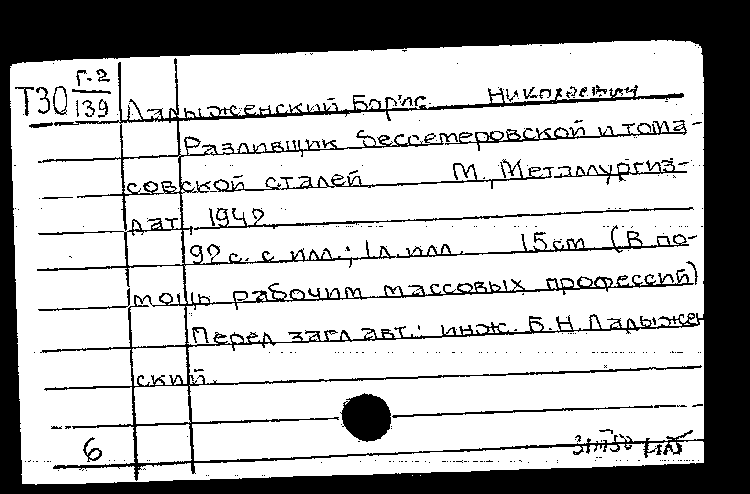 Т30 Г-2
139 Ладыженский, Борис Николаевич
Разливщик бессемеровской и тома-
совской сталей М., Металлургиз-
дат, 1942
92 с. с илл.; 1 л. илл. 15 см (В по-
мощь рабочим массовых профессий)
Перед загл. авт.: инж. Б.Н. Ладыжен
ский.
6